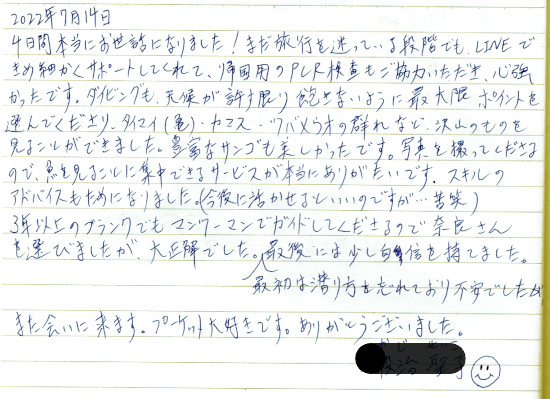 2022年7月14日
4日間本当にお世話になりました！まだ旅行を迷っている段階でも、LINEで
きめ細かくサポートしてくれて、帰国用のPCR検査もご協力いただき、心強
かったです。ダイビングも、天候が許す限り飽きないように最大限ポイントを
選んでくださり、タイマイ(亀)・カマス・ツバメウオの群れなど、沢山のものを
見ることができました。豊富なサンゴも美しかったです。写真を撮ってくださる
ので、魚を見ることに集中できるサービスが本当にありがたいです。スキルの
アドバイスもためになりました。(今後に活かせるといいのですが…苦笑)
3年以上のブランクでもマンツーマンでガイドしてくださるので奈良さん
を選びましたが、大正解でした。最後には少し自信を持てました。
最初は潜り方を忘れており不安でしたが
また会いに来ます。プーケット大好きです。ありがとうございました。